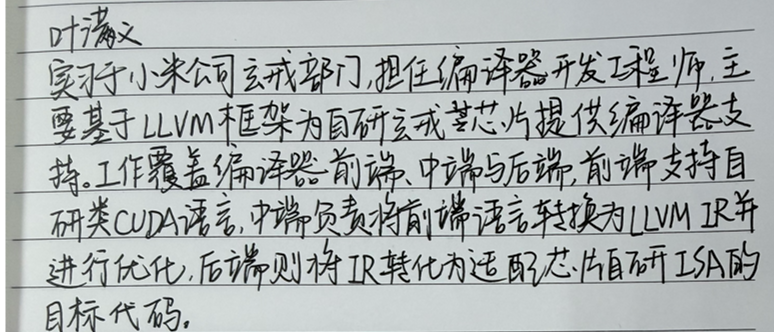 叶满义
实习于小米公司玄戒部门,担任编译器开发工程师,主
要基于LLVM框架为自研玄戒芯片提供编译器支
持。工作覆盖编译器前端、中端与后端,前端支持自
研类CUDA语言,中端负责将前端语言转换为LLVM IR并
进行优化,后端则将IR转化为适配芯片自研ISA的
目标代码。